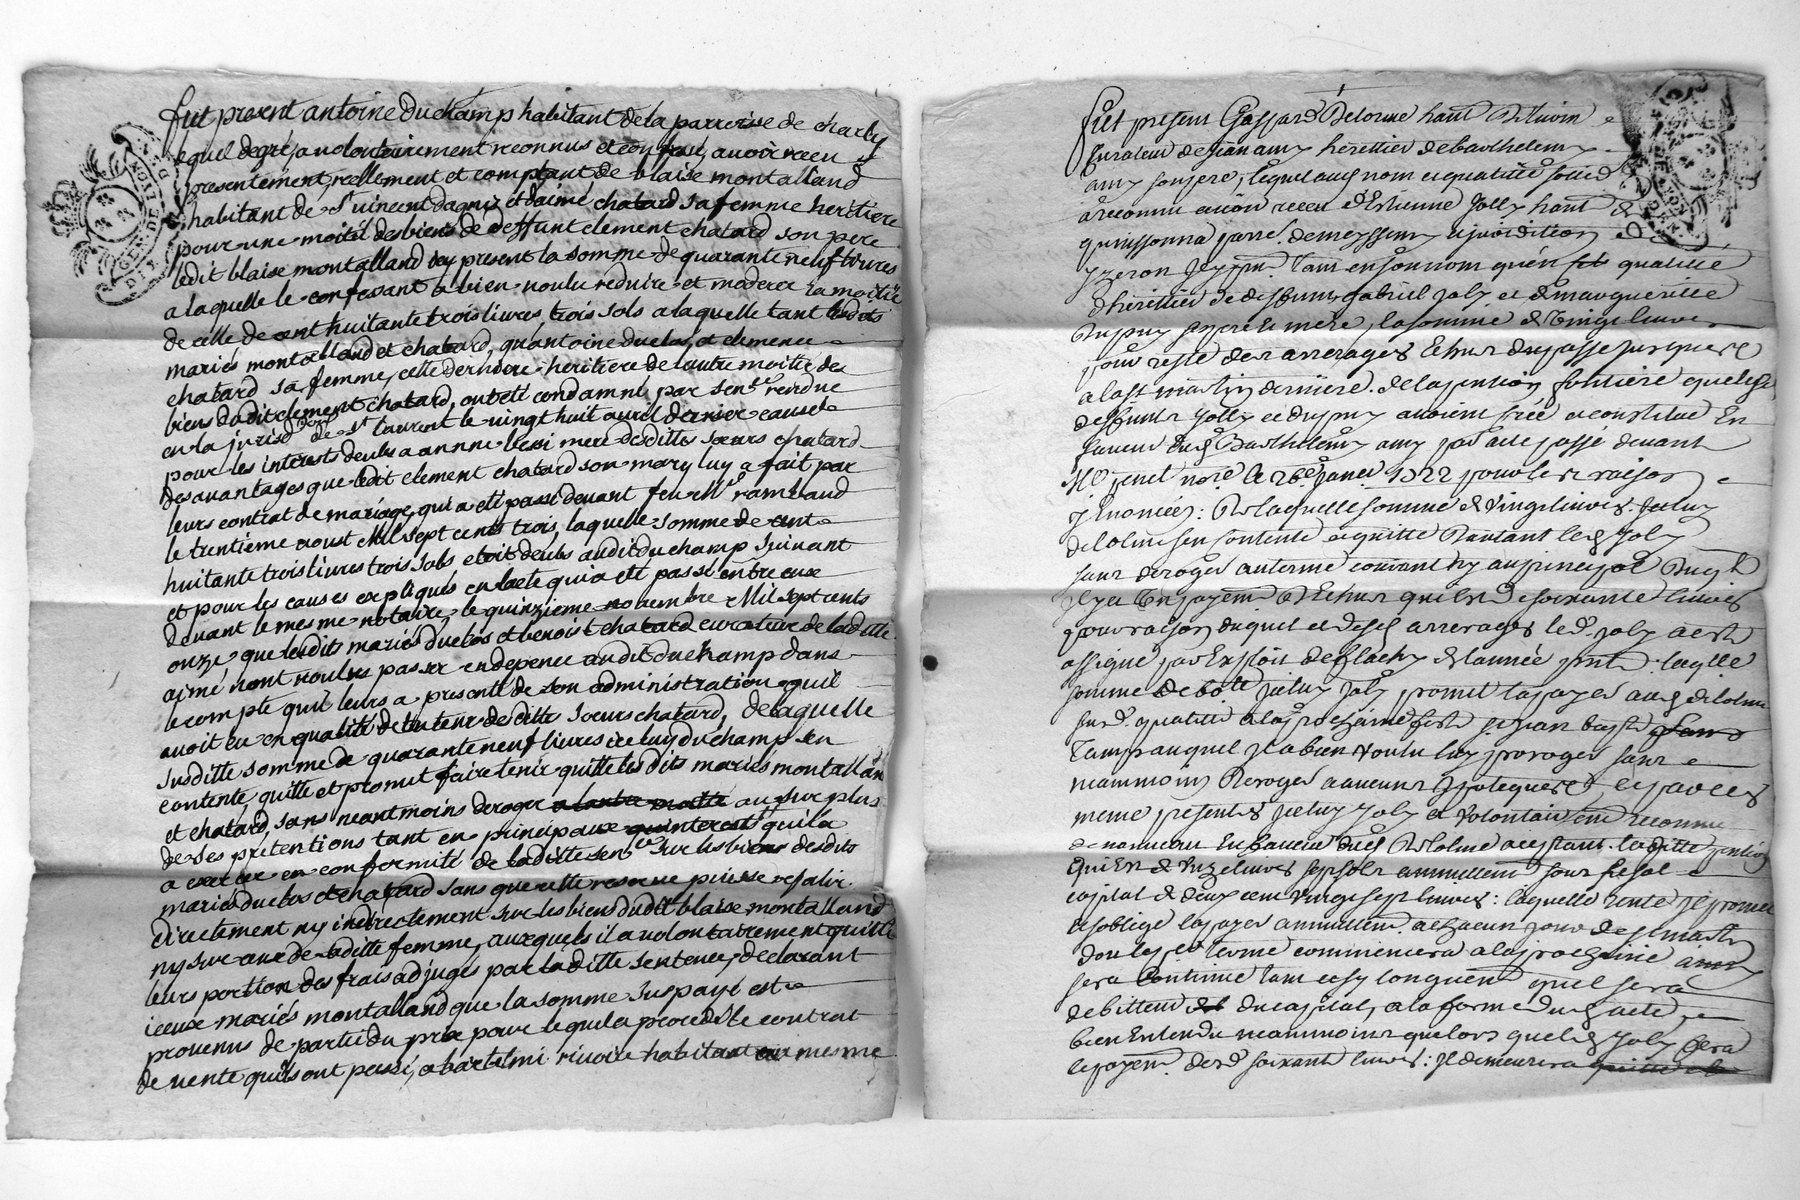 fut present antoine Duchamp habitant de la parroisse de charly
lequel de gré a volontairement reconnus et confessé, avoir receu
presentement, reellement et comptant de blaise montalland
habitant de St vincent dagny et d'aimé chatard sa femme heritiere
pour une moitié des biens de deffunt clement chatard son pere
ledit blaise montalland icy present la somme de quarante neuf livres
a laquelle le confessant a bien voulu reduire et moderer la moitié
de celle de cent huitante trois livres trois sols a laquelle tant lesdits
mariés montalland et chatard, qu'antoine duclos, et clemence
chatard sa femme, cette derniere heritiere de l'autre moitié des
biens dudit clement chatard, ont eté condamné par sence rendue
en la jurisdon de St laurent le vingt huit avril dernier cause
pour les interests deubs a annne mere desdittes soeurs chatard
des avantages que ledit clement chatard son mary luy a fait par
leurs contrat de mariage, qui a eté passé devant feu Me rambaud
le trentième aoust Mil sept cents trois, laquelle somme de cent
huitante trois livres trois sols etoit deubs audit duchamp suivant
et pour les causes expliqués en lacte qui a eté passé entre eux
devant le mesme notaire, le quinzieme novembre Mil sept cents
onze que lesdits mariés duclos et benoist chatard curatrice de laditte
aimé n'ont voulus passer en depence audit duchamp dans
le compte qu'il leurs a presenté de son administration qu'il
avoit eu en qualité de tuteur desdittes soeurs chatard, de laquelle
susditte somme de quarante neuf livres icelui duchamp s'en
contente, quitte et promet faire tenir quitte lesdits mariés montalland
et chatard, sans neantmoins deroger a lautre moitié au surplus
de ses pretentions tant en principaux qu'interests qu'il a
a exercer en conformité de laditte sence sur les biens desdits
mariés duclos et chatard sans que cette reserve puisse rejalir
directement ny indirectement sur les biens dudit blaise montalland
ny sur ceux de laditte femme, auxquels il a volontairement quitté
leurs portion des frais adjugés par laditte sentence, declarant
iceux mariés montalland que la somme suspayé est
provenus de partie du prix pour lequel a procedé le contrat
de vente qu'ils ont passé, a bartelmi rivoire habitant au mesme
GEN. DE LYON
fut present Gaspard Delorme hant
Curateur de jean amy herittier de barthelemy
amy son pere, lequel aud nom et qualitté
a reconnu avoir receu d'Estienne Jolly hant
parre. de meysseny et juridition
yzeron Jcy pnt. tant en son nom qu'en qualitté
d'herittier de deffunts gabriel joly et de margueritte
Dupuy ses pere et mere, la somme de Vingt livres
pour reste des arrerages Echus du passe jusques
a la st martin derniere. de la pention fontiere que lesd
deffunts Jolly et dupuy avoient créé et constitué En
faveur dud Barthelemy amy par acte passé devant
Me nore le 26e janer 1722 pour les raisons
y Enoncées: De laquelle somme de Vingt livres. Iceluy
delolme s'en contente et quitte Dautant led Joly
sans deroger au terme courant ny au principal
livres
pour raison duquel et desd arrerages led. joly a esté
assigné par Exploit de de l'année pnte. laqlle
somme de Iceluy Joly promet la payer aud delolme
sur d. qualitté a la prochaine feste st jean bapte
temps auquel Il a bien voulu luy proroger sans
neanmoins Deroger a aucunes hypoteques, et par ces
meme presentes Iceluy Joly a volontairemt reconnu
de nouveau En faveur dud Delolme acceptant laditte pention
Qui Est de Unze livres sept sols annuellemt sous le sol
capital de deux cent vingt sept livres: laquelle rente Il promet
et s'oblige la payer annuellemt. a chacun jour de st martin
dont le pr terme commencera a la prochaine
sera Continué tant et sy longuemt qu'il sera
debitteur du capital, a la forme dud acte,
bien Entendu neanmoins que lors que led Joly fera
le payemt. desd. soixante livres: Il demeurera